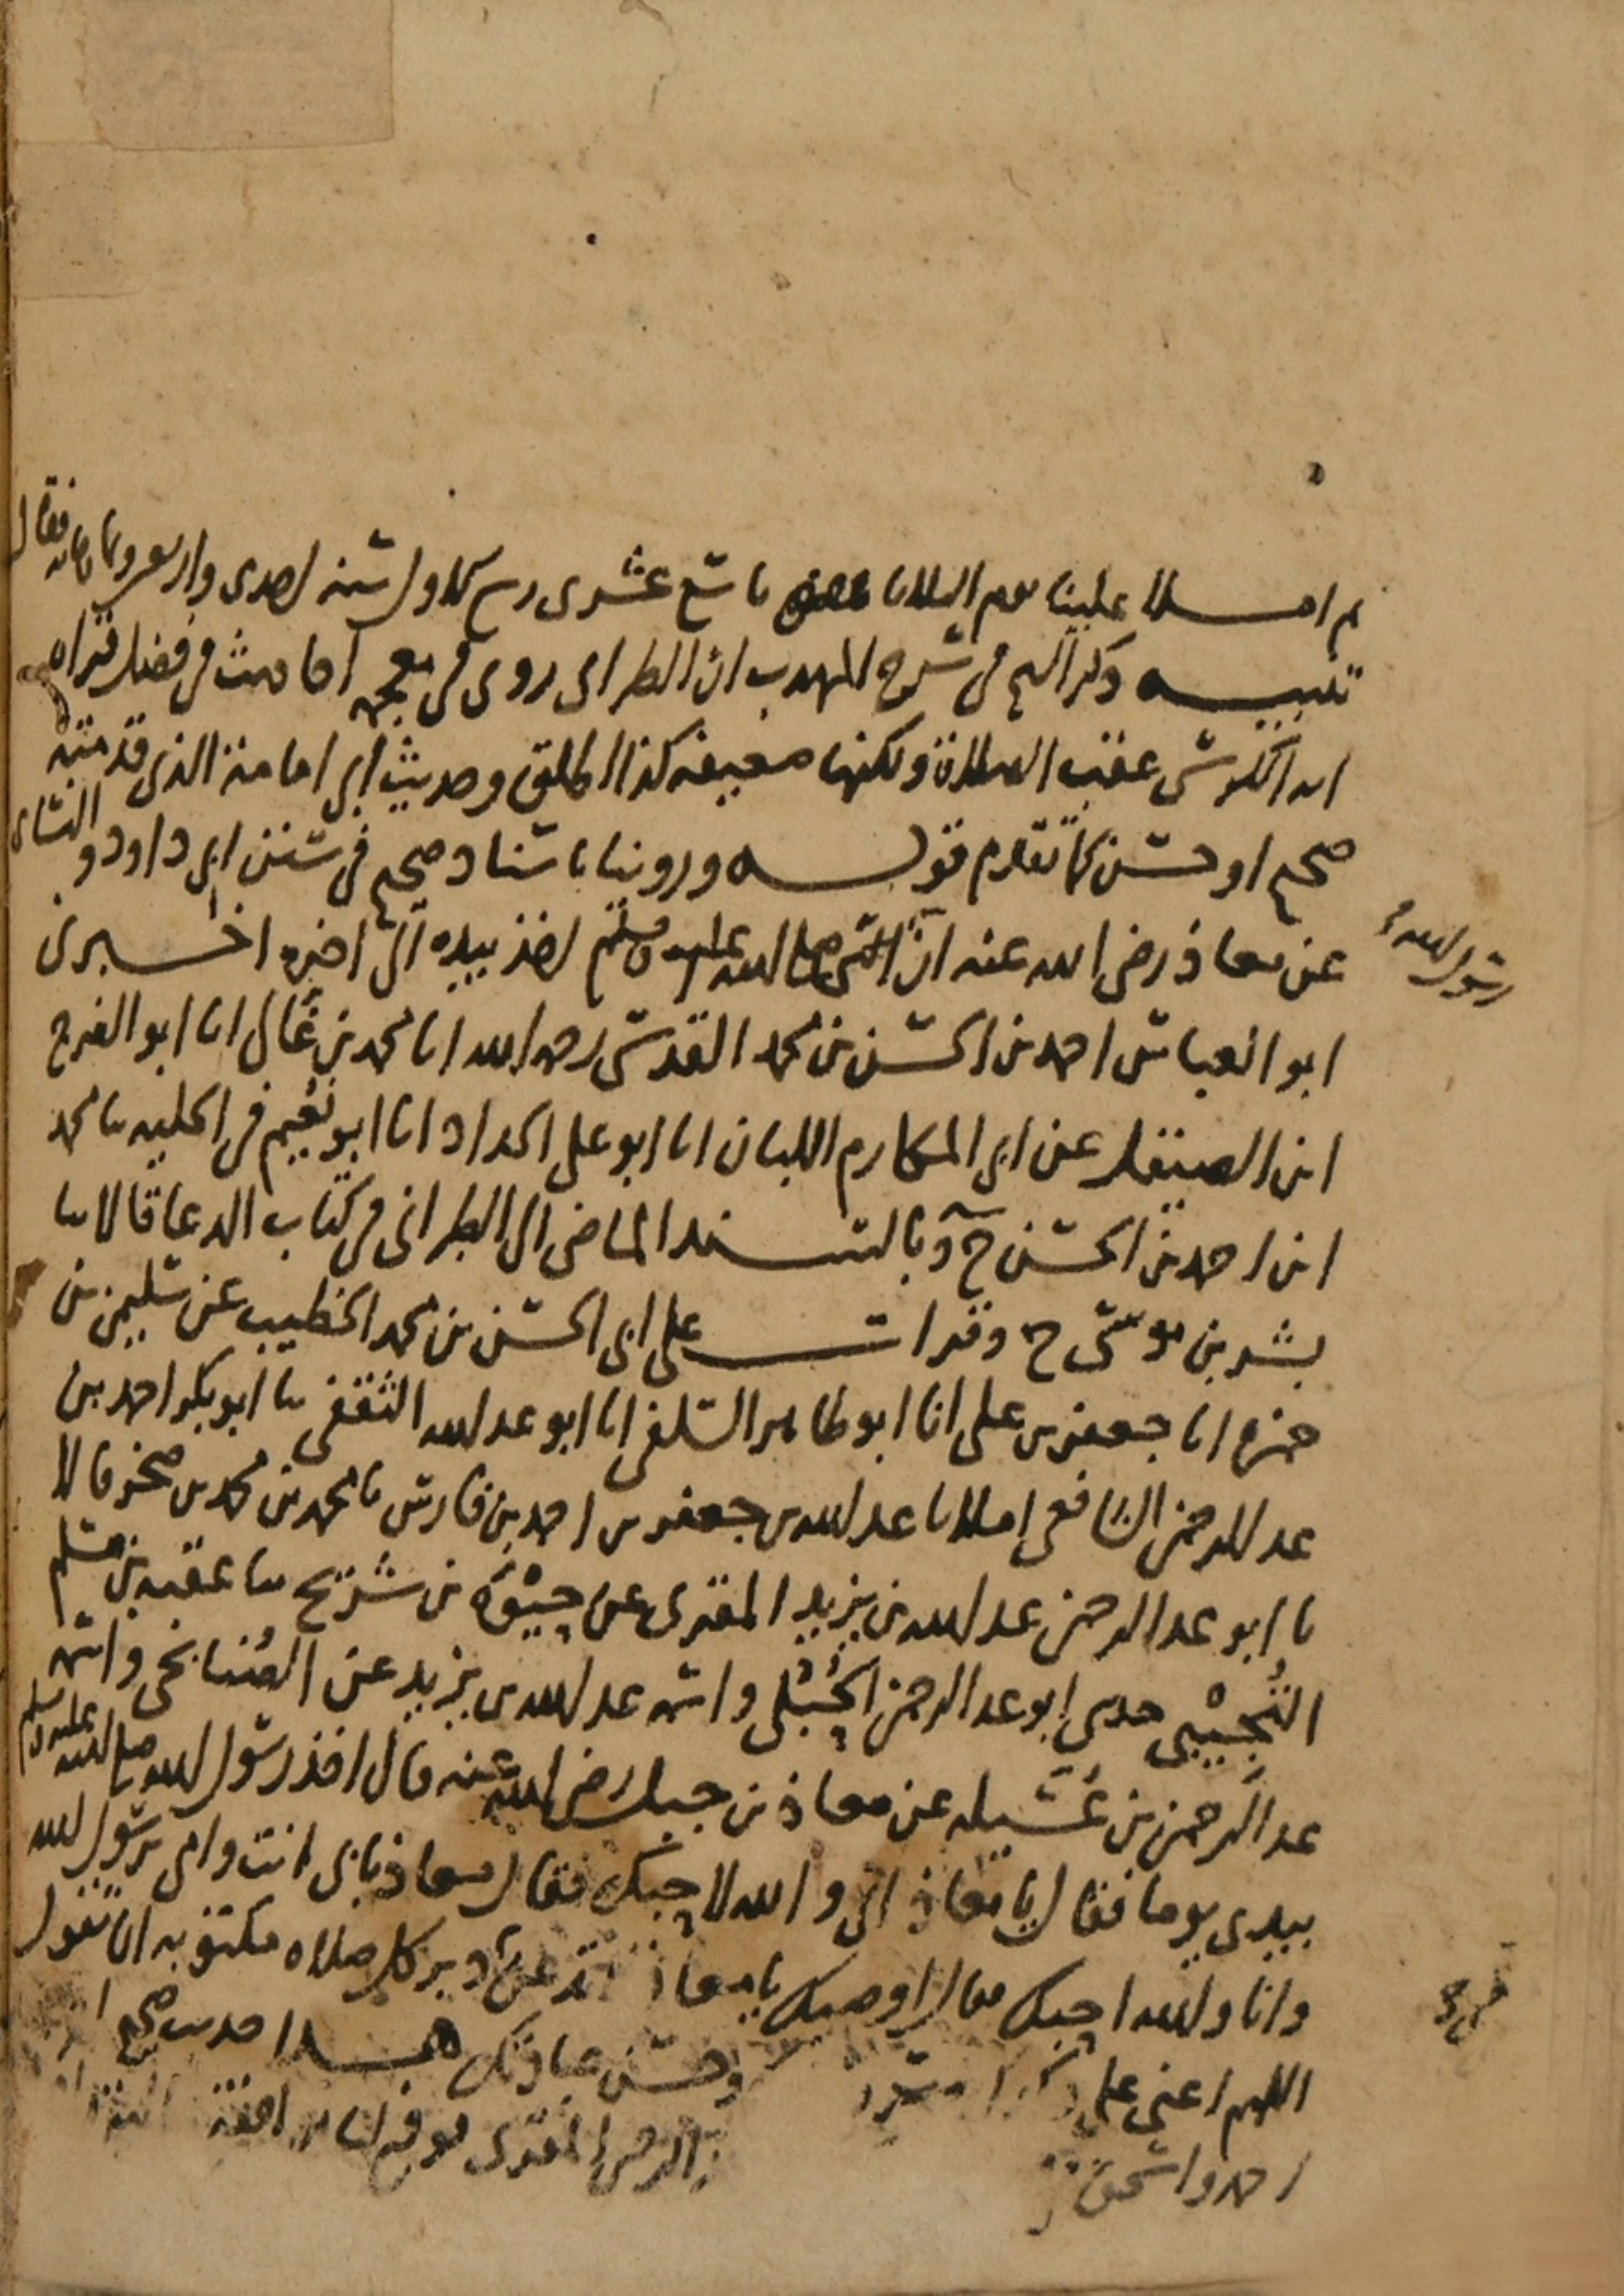 ثم املا علينا يوم الثلاثا تاسع عشرى ربيع الاول سنه احدى واربعين وثمانمائه فقال
تنبيه ذكر الشيخ فى شرح المهذب ان الطبرانى روى فى معجمه احاديث فى فضل قراءه
ايه الكرسى عقب الصلاة ولكنها ضعيفه كذا اطلق وحديث ابى امامة الذى قدمته
صحيح او حسن كما تقدم قوله وروينا باسناد صحيح فى سنن ابى داود والنسائى
عن معاذ رضى الله عنه ان النبى صلى الله عليه وسلم اخذ بيده الى اخره اخبرنى
رسول الله
ابو العباس احمد بن الحسن بن محمد القدسى رحمه الله انا محمد بن غالى انا ابو الفرج
ابن الصيقل عن ابى المكارم اللبان انا ابو على الحداد انا ابو نعيم فى الحليه ثنا محمد
ابن احمد بن الحسن ح وبالسند الماضى الى الطبرانى فى كتاب الدعا قالا ثنا
بشر بن موسى ح وقرات على ابى الحسن بن محمد الخطيب عن سليمن بن
حمزه انا جعفر بن على انا ابو طاهر السلفى انا ابو عبد الله الثقفى ثنا ابو بكر احمد بن
عبد الرحمن الشافعى املاء ثنا عبد الله بن جعفر بن احمد بن فارس ثنا محمد بن محمد بن صخر قالا
ثنا ابو عبد الرحمن عبد الله بن يزيد المقرى عن حيوة بن شريح ثنا عقبه بن مسلم
التجيبى حدثنى ابو عبد الرحمن الحبلى واسمه عبد الله بن يزيد عن الصنابحى واسمه
عبد الرحمن بن عسيله عن معاذ بن جبل رضى الله عنه قال اخذ رسول الله صلى الله عليه وسلم
بيدى يوما فقال يا معاذ انى والله لاحبك فقال معاذ بابى انت وامى يرسول الله
وانا والله احبك فقال اوصيك يا معاذ لا تدعن دبر كل صلاه مكتوبه ان تقول
اللهم اعنى على ذكرك وشكرك وحسن عبادتك هذا حديث صحيح
احمد واسحق الرحمن المقرى فوقع لنا موافقة